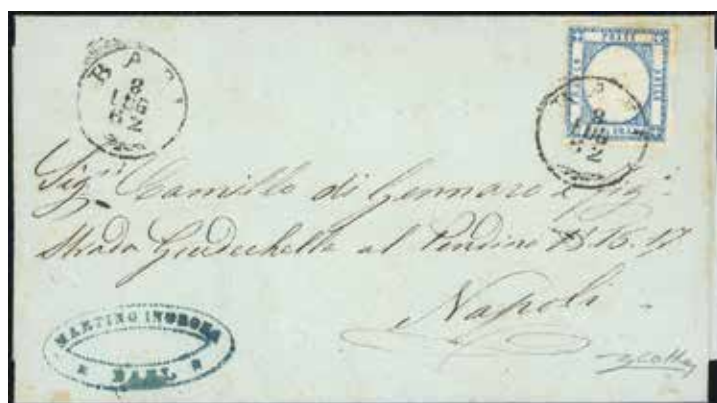 BARI
8
LUG
62
POSTE
BARI
8
LUG
62
Sig.ri Camillo di Gennaro e fig.i
Strada Giudechella al Pendino 15.16.17
Napoli
MARTINO INURGEA
BARI